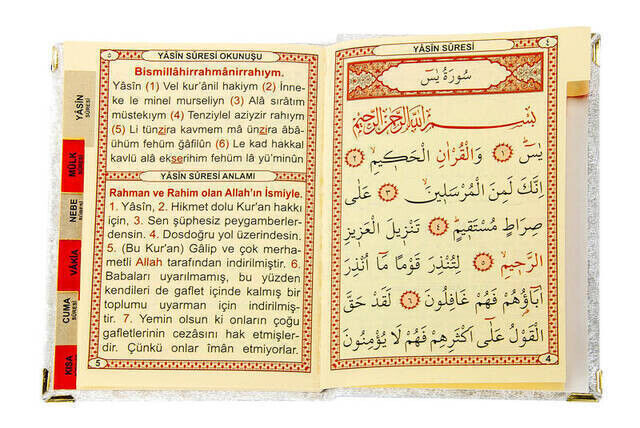 YÂSİN SÛRESİ OKUNUŞU
٥
Bismillâhirrahmânirrahıym.
Yâsîn (1) Vel kur'ânil hakiym (2) İnne-
ke le minel murseliyn (3) Alâ sıratım
müstekıym (4) Tenziylel aziyzir rahıym
(5) Li tünzira kavmem mâ ünzira âbâ-
ühüm fehüm ğâfilûn (6) Le kad hakkal
kavlü alâ ekserihim fehüm lâ yü'minûn
YÂSİN SÛRESİ ANLAMI
Rahman ve Rahim olan Allah'ın İsmiyle.
1. Yâsîn, 2. Hikmet dolu Kur'an hakkı
için, 3. Sen şüphesiz peygamberler-
densin. 4. Dosdoğru yol üzerindesin.
5. (Bu Kur'an) Gâlip ve çok merha-
metli Allah tarafından indirilmiştir. 6.
Babaları uyarılmamış, bu yüzden
kendileri de gaflet içinde kalmış bir
toplumu uyarman için indirilmiş-
tir. 7. Yemin olsun ki onların çoğu
gafletlerinin cezasını hak etmişler-
dir. Çünkü onlar îmân etmiyorlar.
5
YÂSİN
SÛRESİ
MÜLK
SÛRESİ
NEBE
SÛRESİ
VÂKIA
SÛRESİ
CUMA
SÛRESİ
KISA
YÂSİN SÛRESİ
٤
سُورَةُ يٰسٓ
بِسْمِ اللّٰهِ الرَّحْمٰنِ الرَّحِيمِ
يٰسٓ ﴿١﴾ وَالْقُرْاٰنِ الْحَكِيمِ ﴿٢﴾
اِنَّكَ لَمِنَ الْمُرْسَلِينَ ﴿٣﴾ عَلٰى
صِرَاطٍ مُسْتَقِيمٍ ﴿٤﴾ تَنْزِيلَ الْعَزِيزِ
الرَّحِيمِ ﴿٥﴾ لِتُنْذِرَ قَوْمًا مَٓا اُنْذِرَ
اٰبَٓاؤُهُمْ فَهُمْ غَافِلُونَ ﴿٦﴾ لَقَدْ حَقَّ
الْقَوْلُ عَلٰٓى اَكْثَرِهِمْ فَهُمْ لَا يُؤْمِنُونَ
4